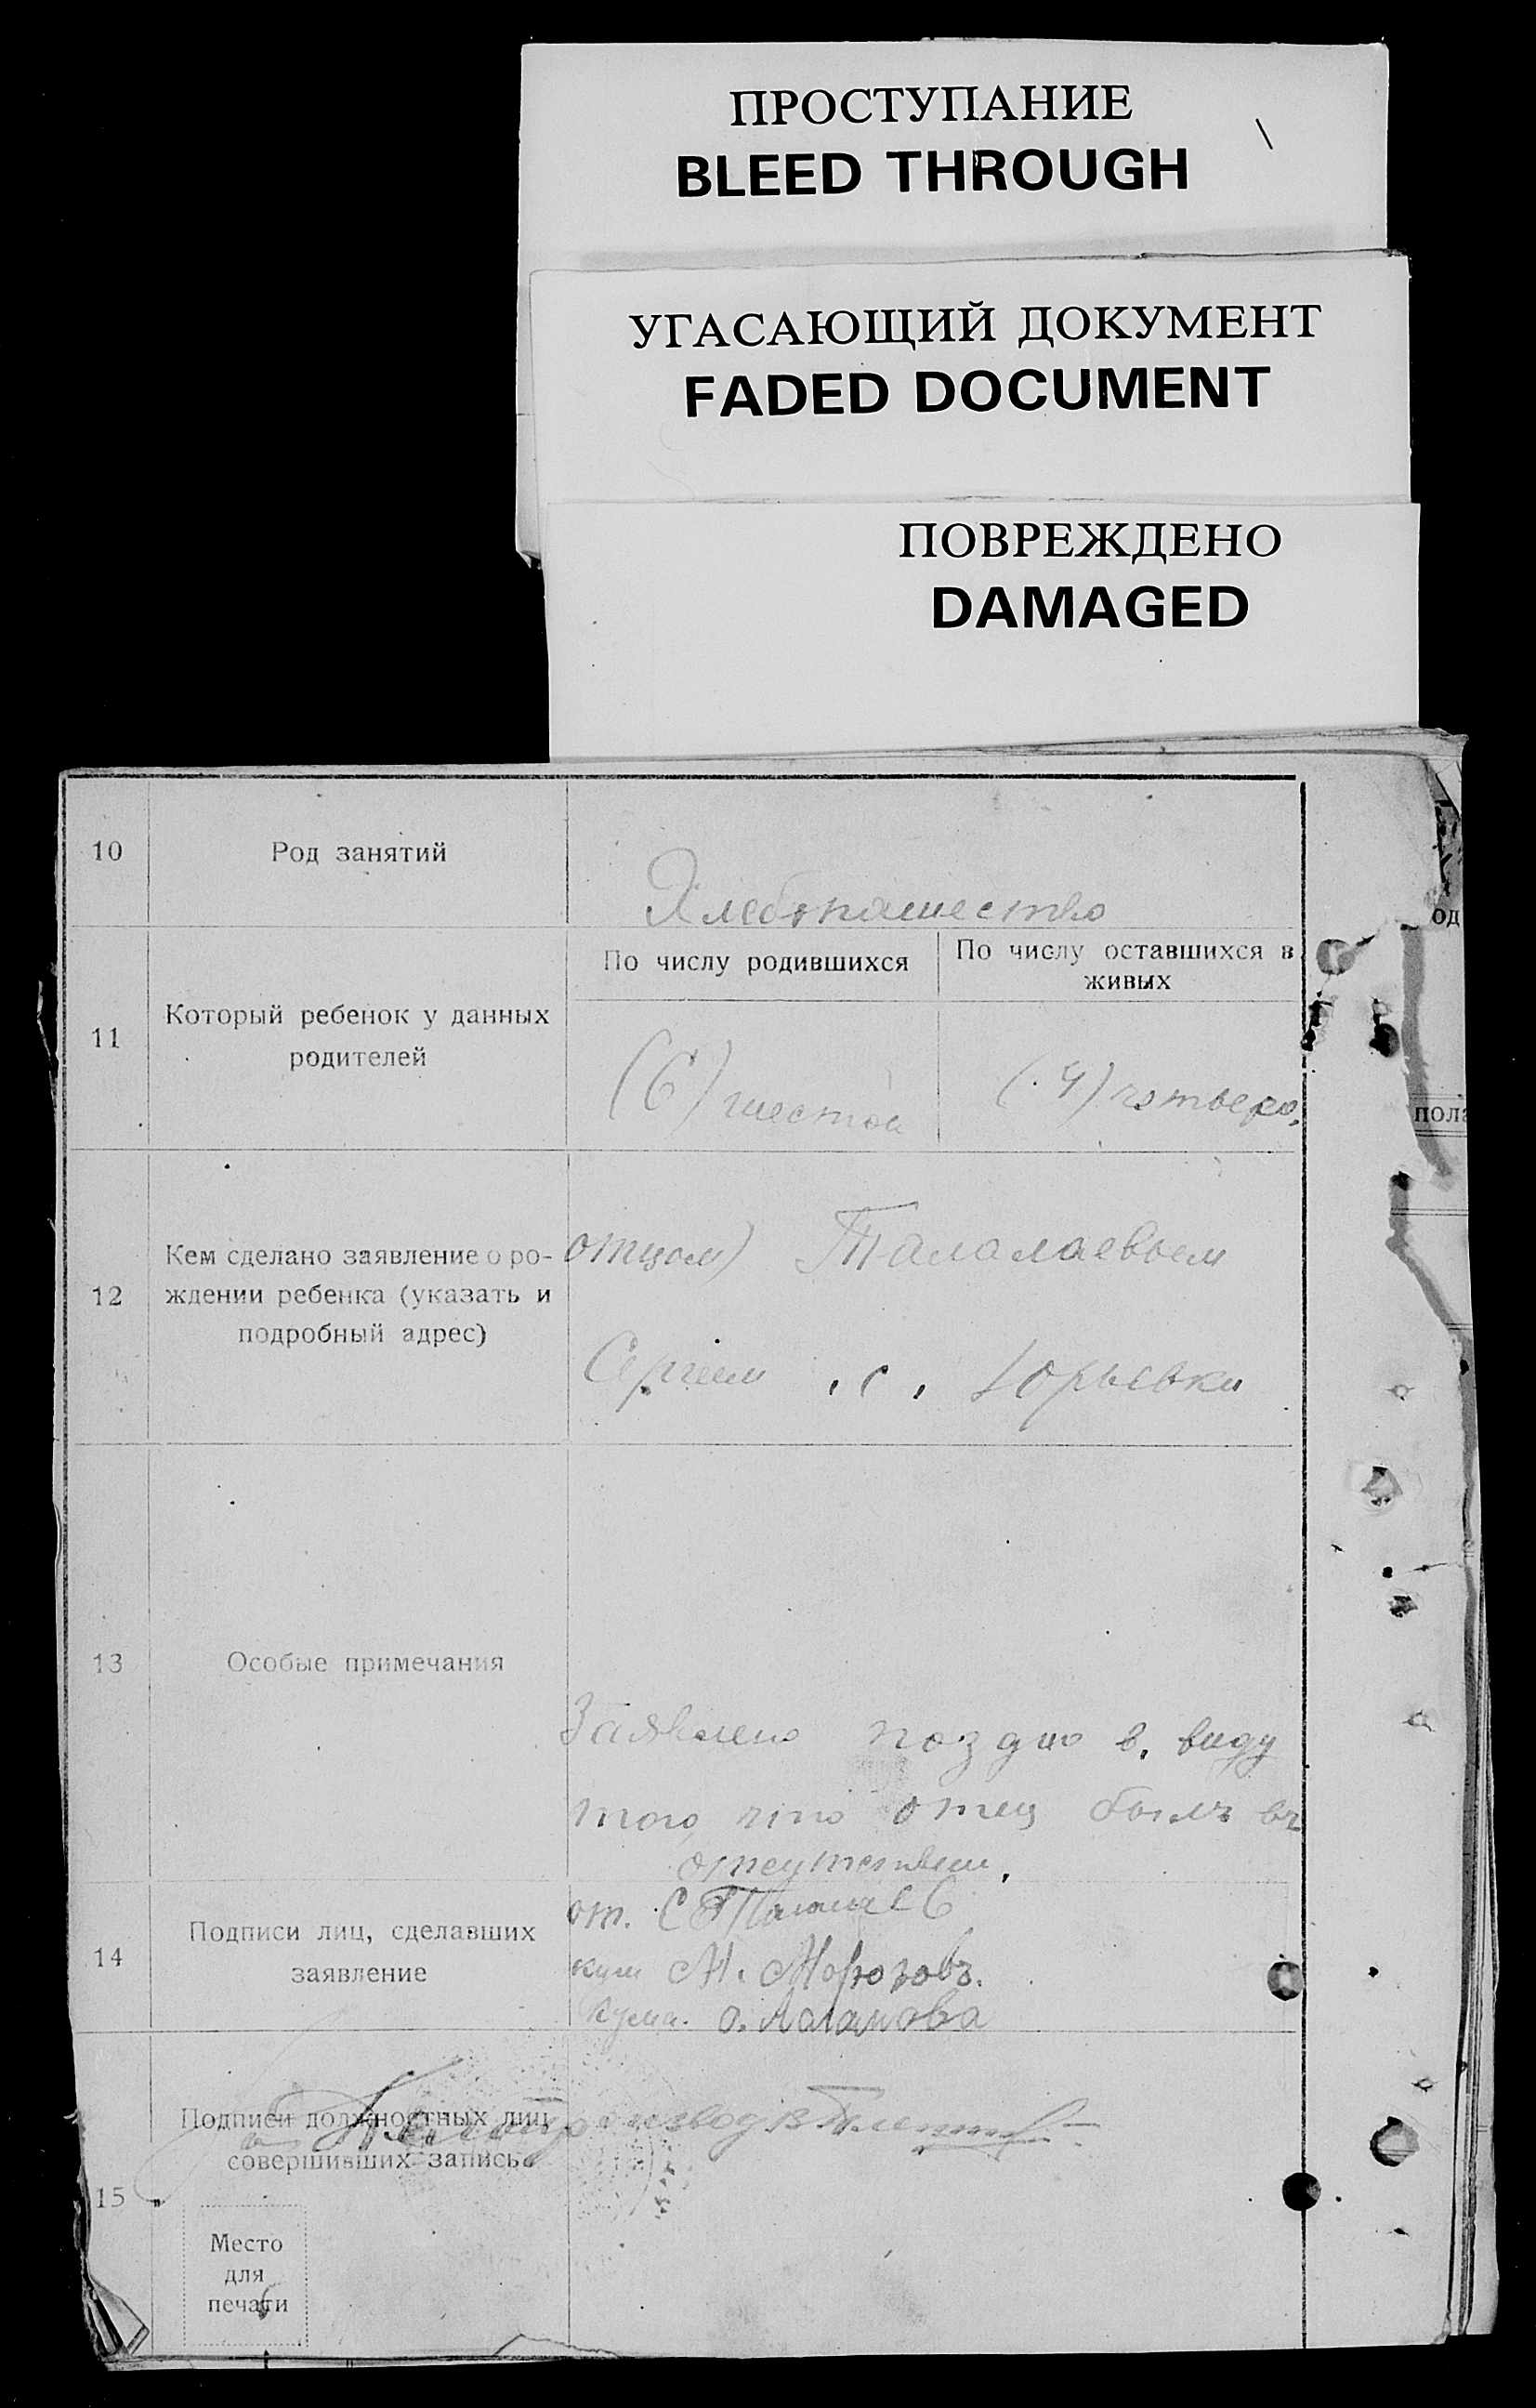 ПРОСТУПАНИЕ
BLEED THROUGH
УГАСАЮЩИЙ ДОКУМЕНТ
FADED DOCUMENT
ПОВРЕЖДЕНО
DAMAGED
10 Род занятий Хлебопашество
11 Который ребенок у данных
родителей
По числу родившихся
(6) шестой
По числу оставшихся в
живых
(4) четверо.
12 Кем сделано заявление о ро-
ждении ребенка (указать и
подробный адрес)
отцом) Талалаевым
Сергеем с. Юрьевки
13 Особые примечания
Заявлено поздно в. виду
того что отец былъ въ
отсутствии.
14 Подписи лиц, сделавших
заявление
от. С
кум М. Морозовъ.
кума. О.
15 Подписи должностных лиц,
совершивших запись
Место
для
печати
од
пола